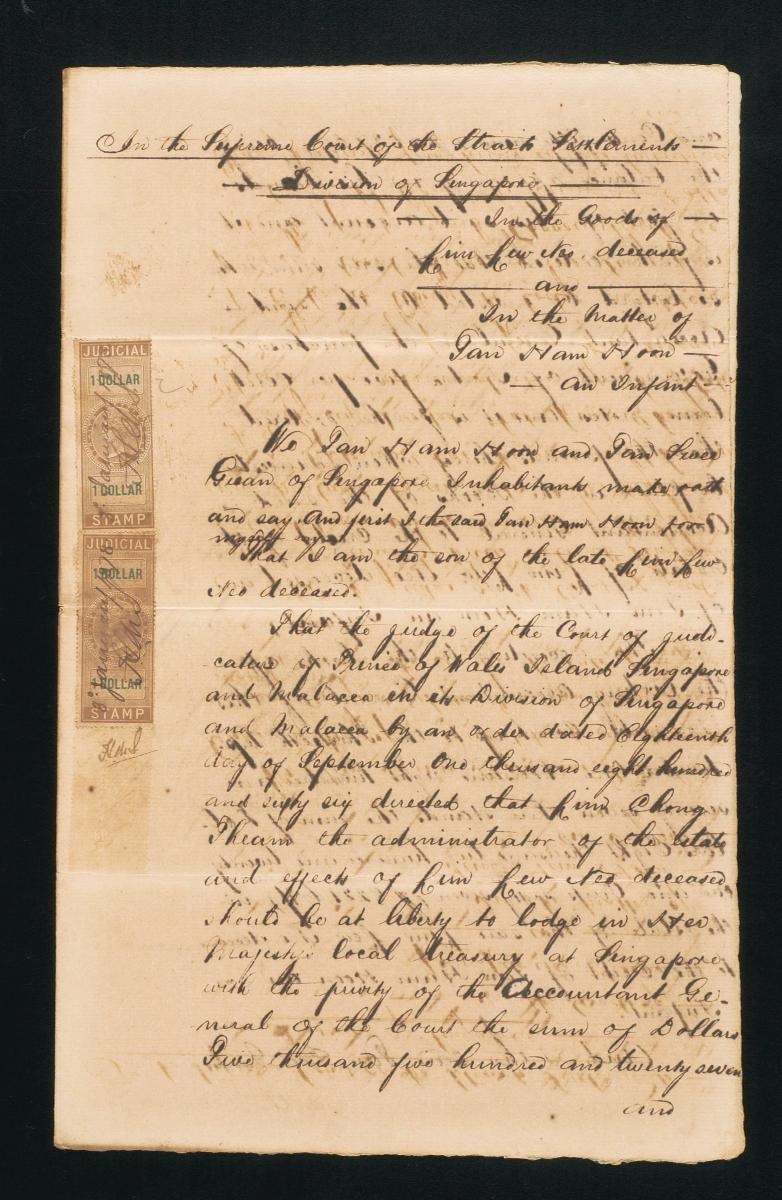 In the Supreme Court of the Straits Settlements
Division of Singapore
In the Goods of
Lim Lew Neo deceased
and
In the Matter of
Tan Ham Hoon
an Infant
We Tan Ham Hoon and Tan Swee
Guan of Singapore Inhabitants make oath
and say And first I the said Tan Ham Hoon for
myself say
That I am the son of the late Lim Lew
Neo deceased.
That the judge of the Court of judi-
cature of Prince of Wales Island Singapore
and Malacca in its Division of Singapore
and Malacca by an order dated Eighteenth
day of September One thousand eight hundred
and sixty six directed that Lim Chong
Theam the administrator of the estate
and effects of Lim Lew Neo deceased
should be at liberty to lodge in Her
Majesty's local treasury at Singapore
with the privity of the Accountant Ge-
neral of the Court the sum of Dollars
Two thousand five hundred and twenty seven
and
JUDICIAL
1 DOLLAR
1 DOLLAR
STAMP
JUDICIAL
1 DOLLAR
1 DOLLAR
STAMP